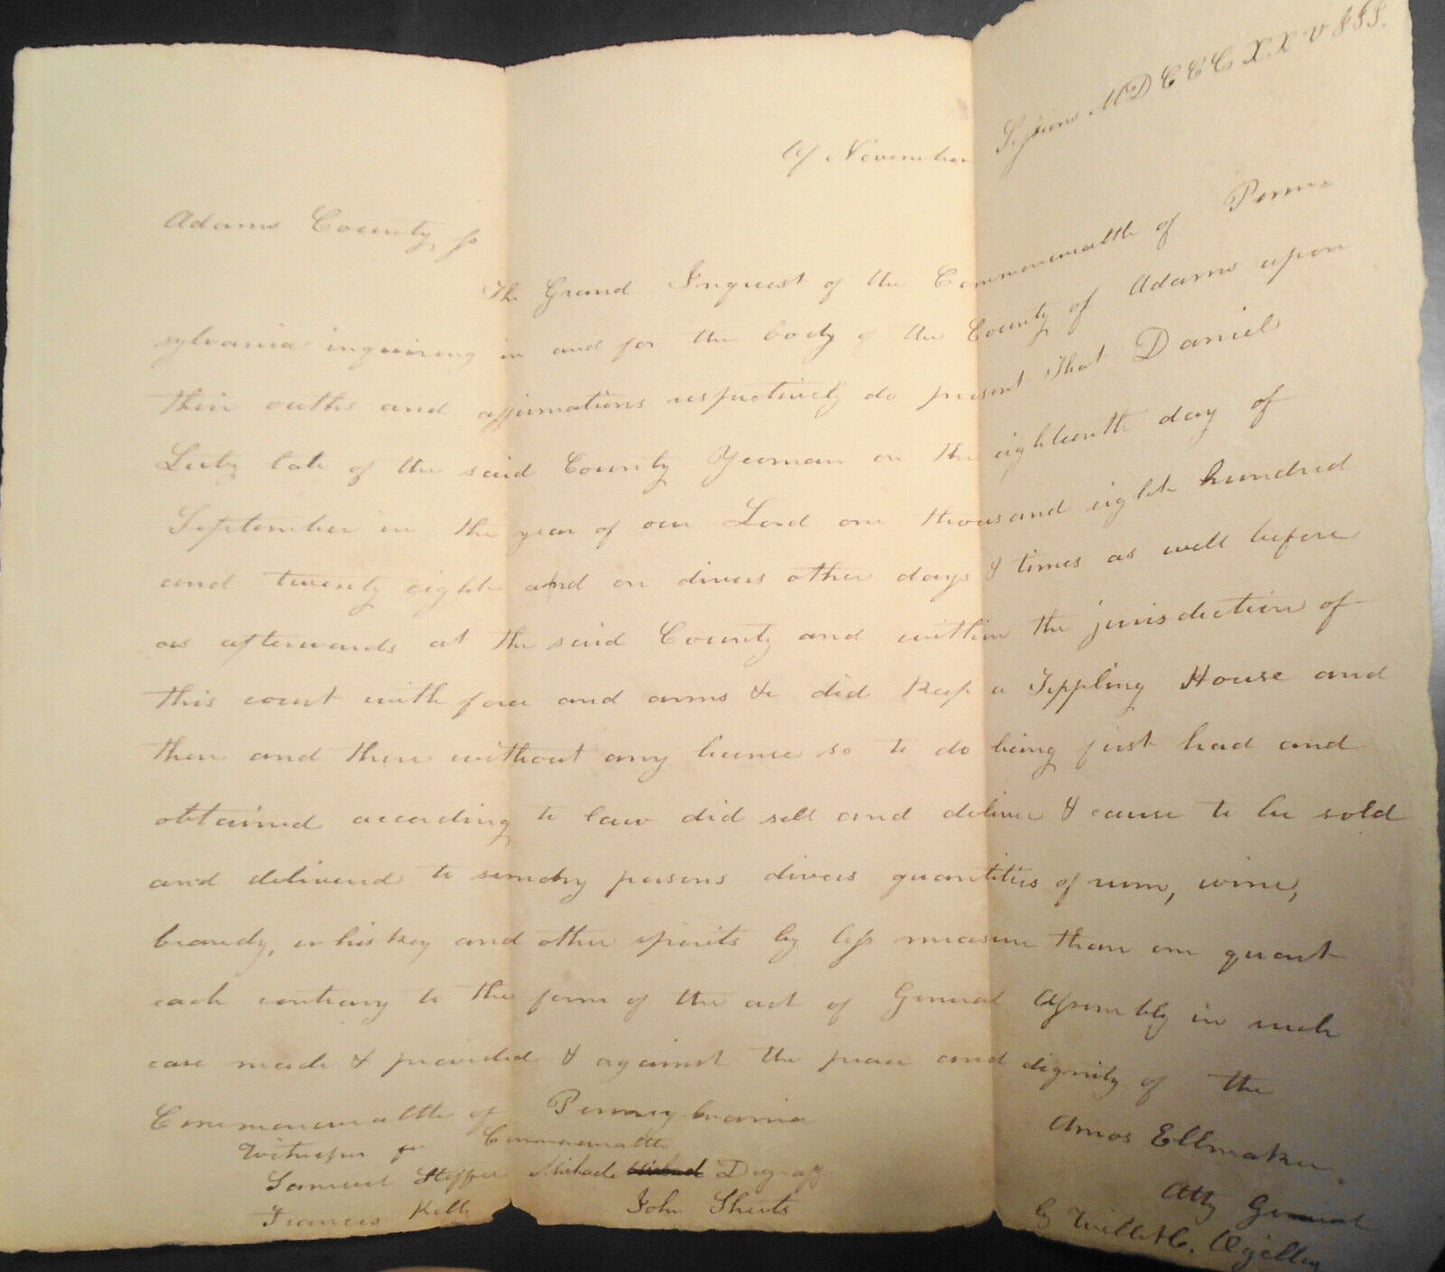 Of November Sessions MDCCCXXVIII.
Adams County ss
The Grand Inquest of the Commonwealth of Penn
sylvania inquiring in and for the body of the County of Adams upon
their oaths and affirmations respectively do present That Daniel
late of the said County Yeoman on the eighteenth day of
September in the year of our Lord one thousand eight hundred
and twenty eight and on divers other days & times as well before
as afterwards at the said County and within the jurisdiction of
this court with force and arms &c did keep a Tippling House and
then and there without any license so to do being first had and
obtained according to law did sell and deliver & cause to be sold
and delivered to sundry persons divers quantities of rum, wine,
brandy, whiskey and other spirits by less measure than one quart
each contrary to the form of the act of General Assembly in such
case made & provided & against the peace and dignity of the
Commonwealth of Pennsylvania
Witnesses for Commonwealth
Samuel Degraff
Francis John Sheets
Amos Ellmaker
Atty General
by